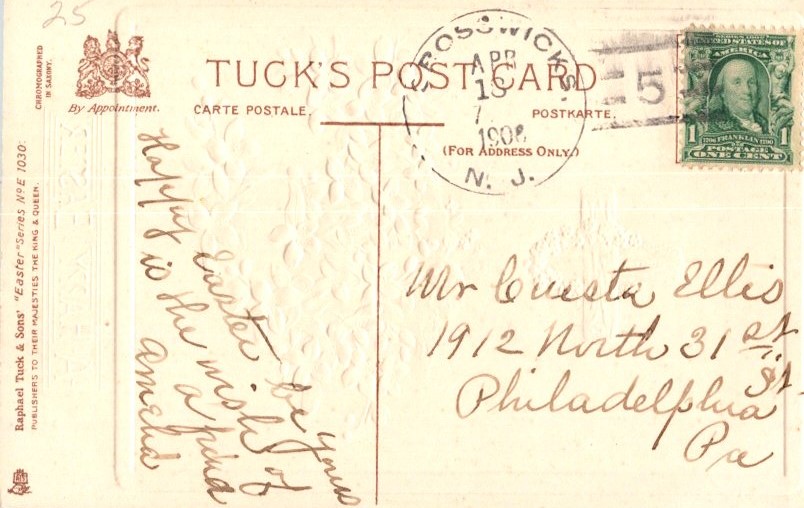 25
CHROMOGRAPHED
IN SAXONY.
By Appointment.
TUCK'S POST CARD
CARTE POSTALE.
POSTKARTE.
(FOR ADDRESS ONLY.)
CROSSWICKS.
APR
13
7
1906
N. J.
5
SERIES 1902
UNITED STATES OF
AMERICA
1
FRANKLIN
POSTAGE
ONE CENT
Raphael Tuck & Sons' "Easter" Series No E 1030:
PUBLISHERS TO THEIR MAJESTIES THE KING & QUEEN.
Happy Easter be yours
is the wish of
a friend
Amelia
Mr Cuesta Ellis
1912 North 31st
St.
Philadelphia
Pa